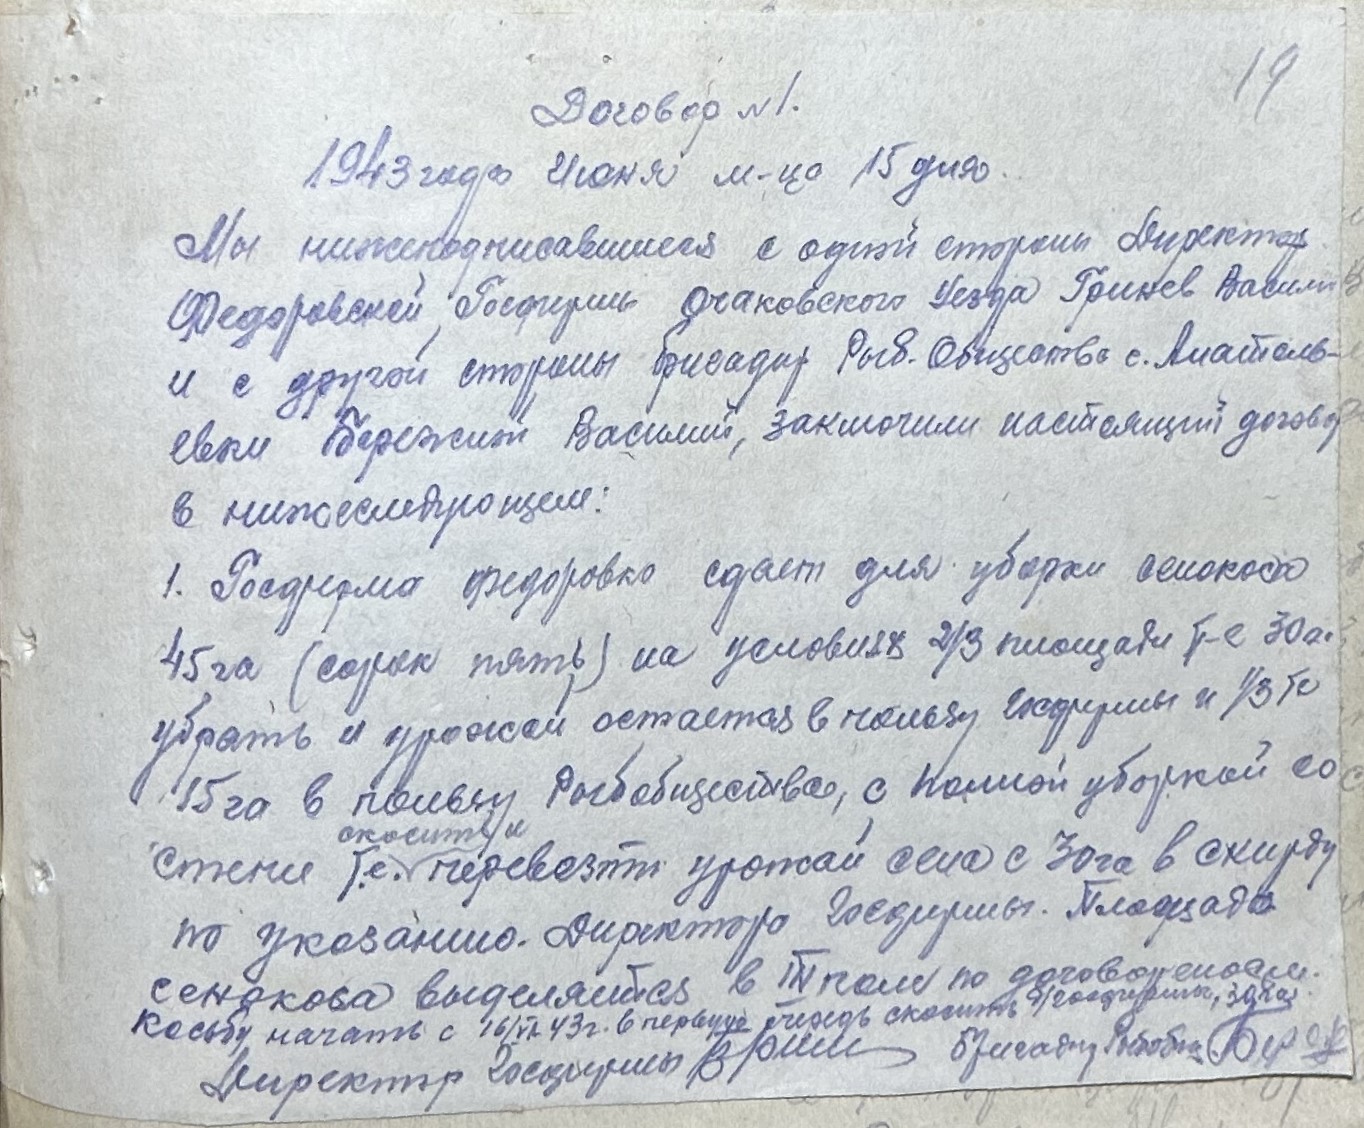 19
Договор №1.
1943 года Июня м-ца 15 дня.
Мы нижеподписавшиеся с одной стороны Директор
Федоровской Госфирмы Очаковского Уезда Гринев Василий
и с другой стороны бригадир Рыб. Общества с. Анатоль-
евки Бережной Василий, заключили настоящий договор
в нижеследующем:
1. Госфирма Федоровка сдает для уборки сенокоса
45 га (сорок пять) на условиях 2/3 площади т-е 30 га
убрать и урожай остается в пользу Госфирмы и 1/3 те
15 га в пользу Рыбобщества, с полной уборкой со
скосить и
степи т.е. перевозти урожай сена с 30 га в скирду
по указанию. Директора Госфирмы. Площадь
сенокоса выделяится в III поле по договоренности.
Косьбу начать с 16/VI 43 г. в первую очередь скосить Госфирмы, 30 га
Директор Госфирмы бригадир Рыбобщ.